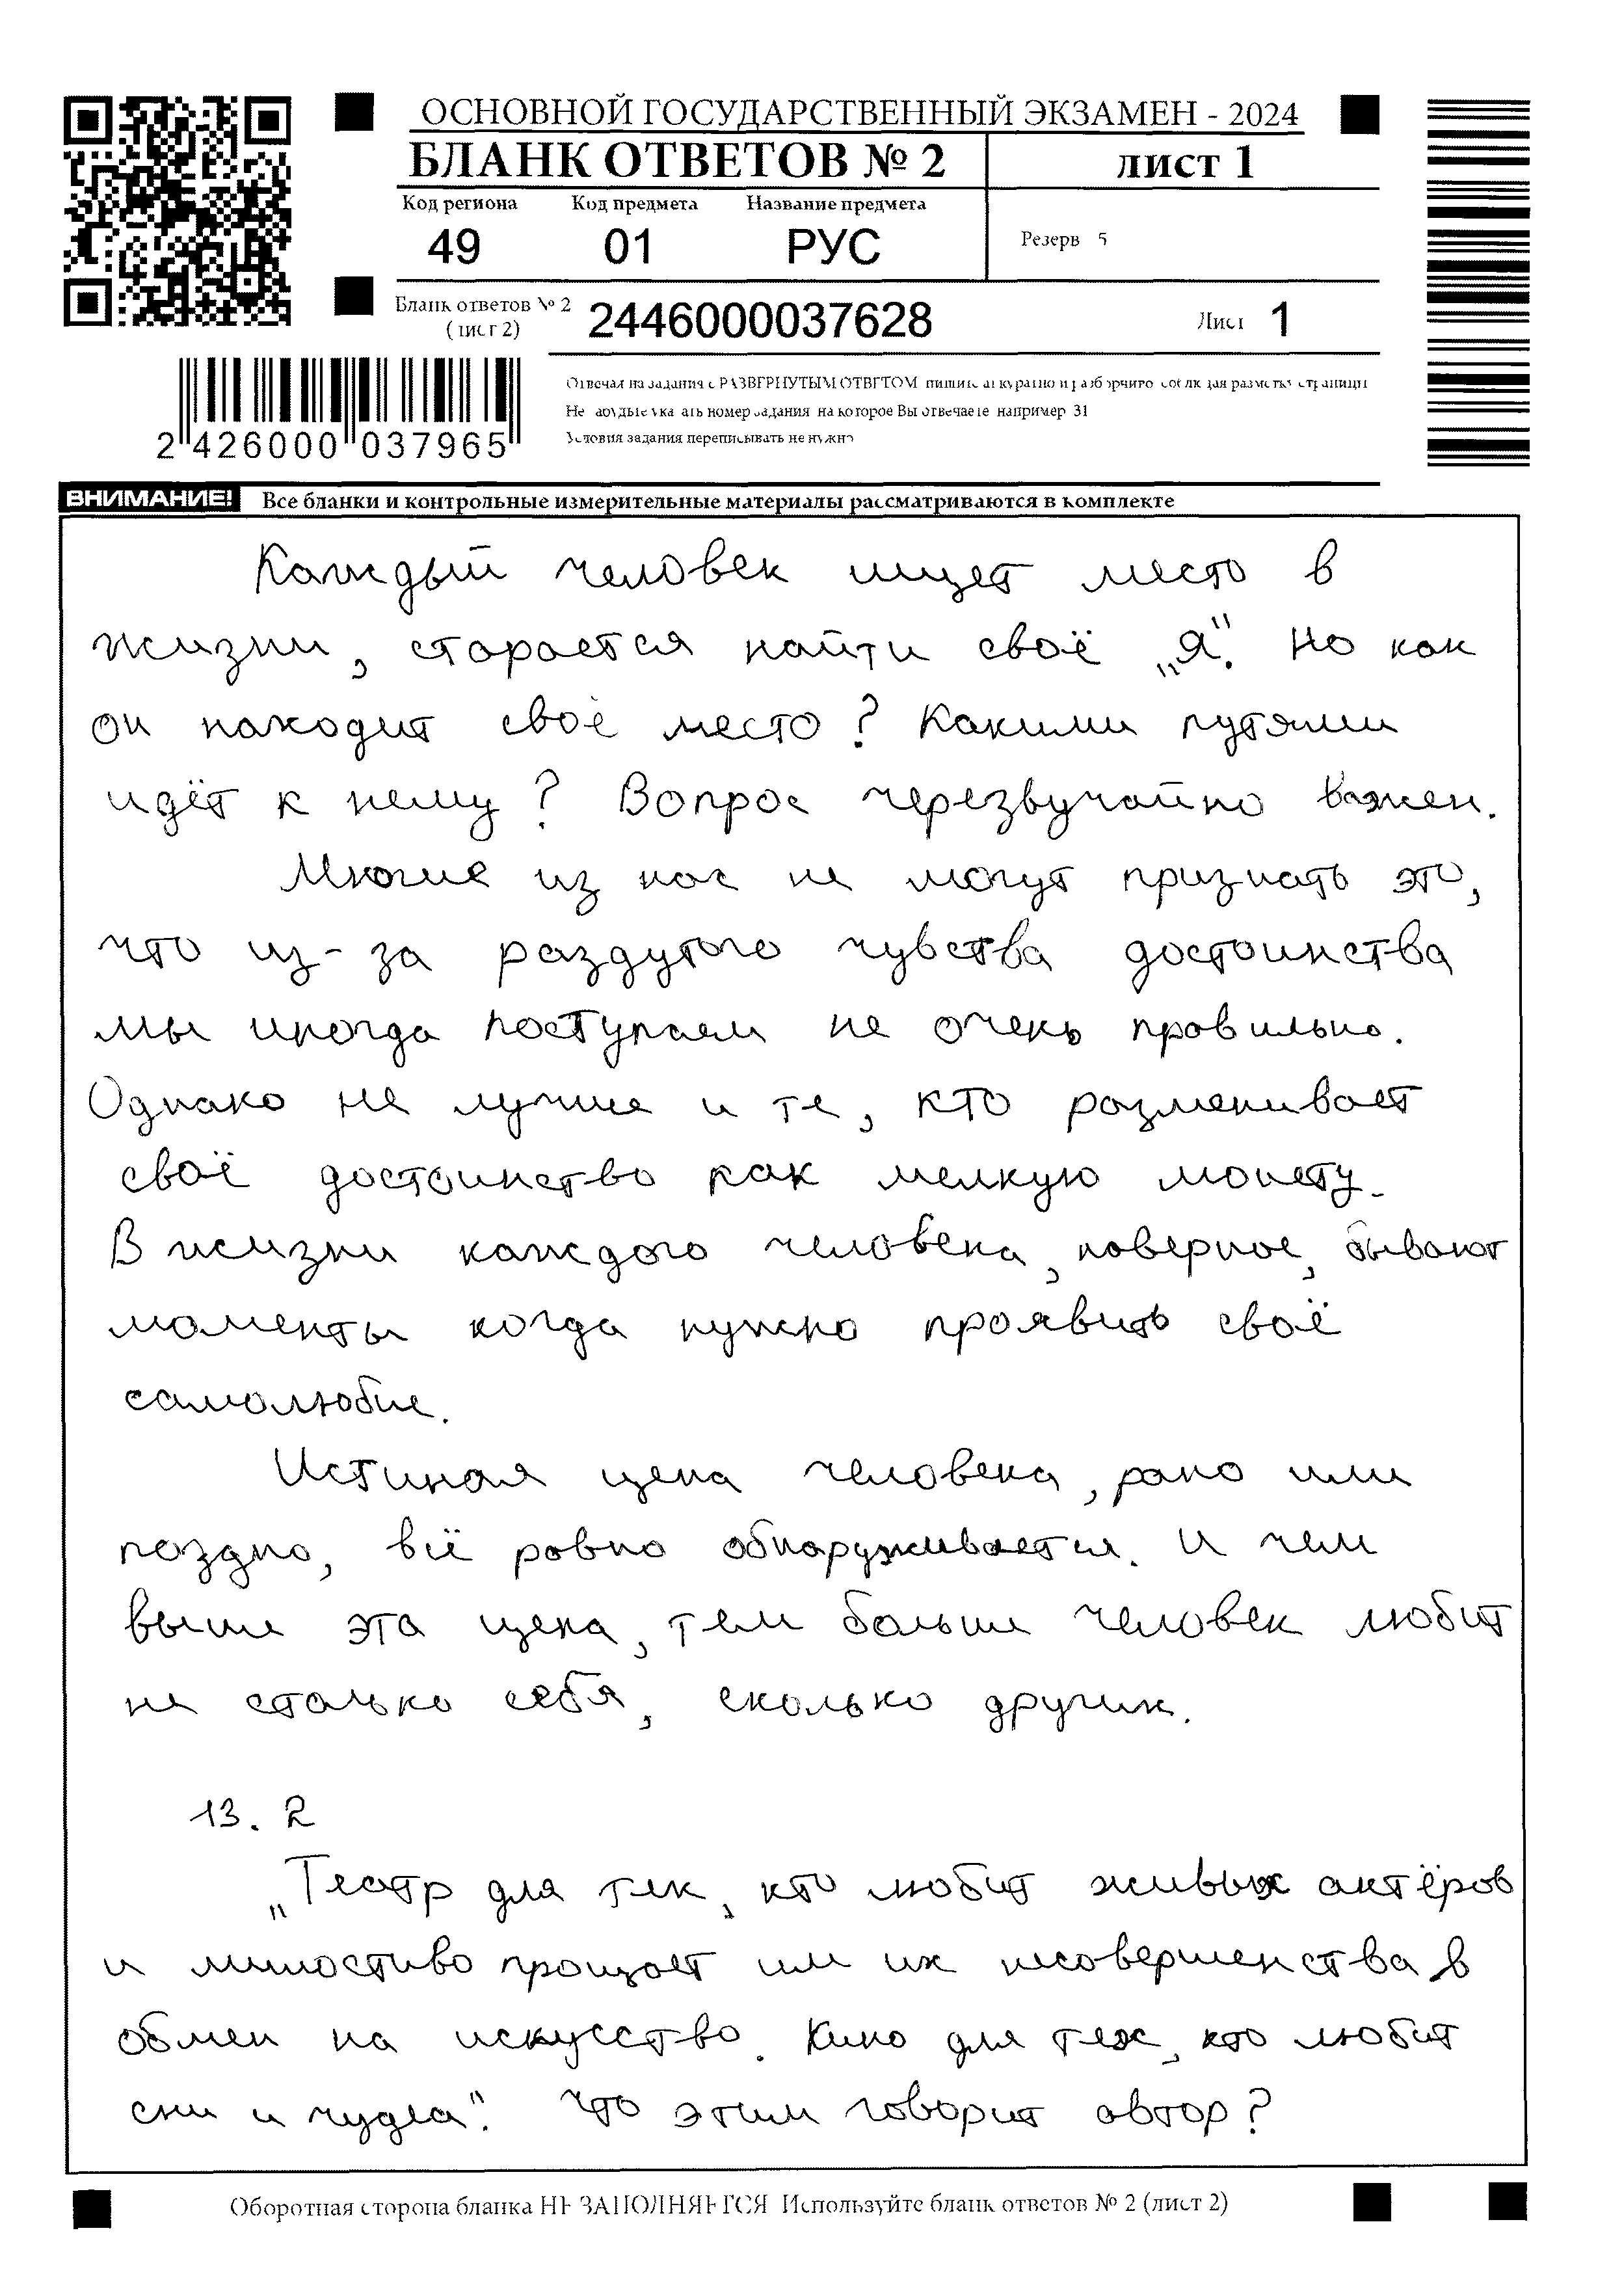 ОСНОВНОЙ ГОСУДАРСТВЕННЫЙ ЭКЗАМЕН - 2024
БЛАНК ОТВЕТОВ № 2
лист 1
Код региона Код предмета Название предмета
49 01 РУС
Резерв 5
Бланк ответов № 2
(лист 2)
2446000037628
Лист 1
Отвечая на задания с РАЗВЕРНУТЫМ ОТВЕТОМ пишите аккуратно и разборчиво соблюдая разметку страницы
Не забудьте указать номер задания на которое Вы отвечаете например 31
Условия задания переписывать не нужно
2 426000 037965
ВНИМАНИЕ! Все бланки и контрольные измерительные материалы рассматриваются в комплекте
Каждый человек ищет место в
жизни, старается найти своё „я". Но как
он находит своё место? Какими путями
идёт к нему? Вопрос черезвучайно важен.
Многие из нас не могут признать это,
что из-за раздутого чувства достоинства
мы иногда поступаем не очень правильно.
Однако не лучше и те, кто разменивает
своё достоинство как мелкую монету.
В жизни каждого человека, наверное, бывают
моменты когда нужно проявить своё
самолюбие.
Истиная цена человека, рано или
поздно, всё равно обнаруживается. И чем
выше эта цена, тем больше человек любит
не столько себя, сколько других.
13. 2
„Театр для тех, кто любит живых актёров
и милостиво прощает им их несовершенства в
обмен на искусство. Кино для тех, кто любит
сны и чудеа". Что этим говорит автор?
Оборотная сторона бланка НЕ ЗАПОЛНЯЕТСЯ Используйте бланк ответов № 2 (лист 2)